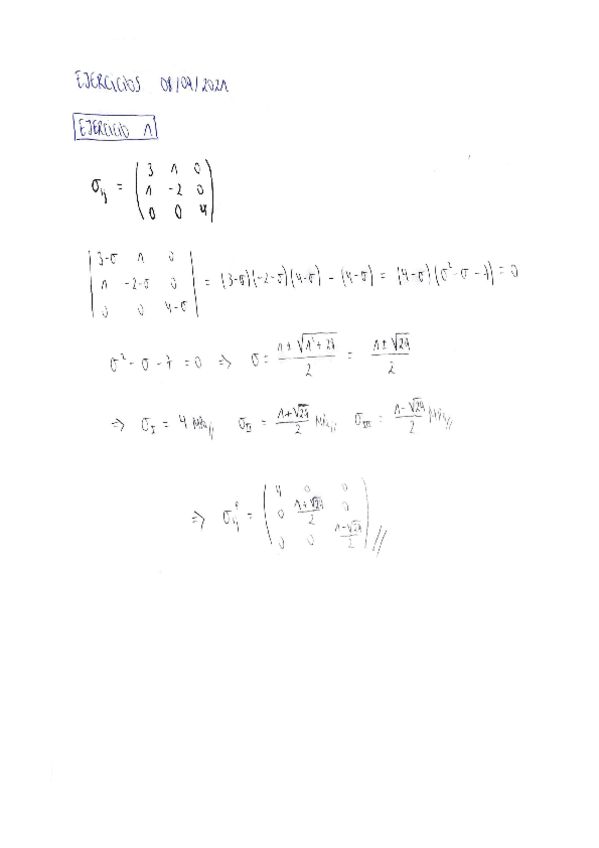 EJERCICIOS 08/09/2021
EJERCICIO 1
σij = ( 3 1 0
1 -2 0
0 0 4 )
| 3-σ 1 0
1 -2-σ 0
0 0 4-σ | = (3-σ)(-2-σ)(4-σ) - (4-σ) = (4-σ)(σ² - σ - 7) = 0
σ² - σ - 7 = 0 ⇒ σ = (1 ± √(1² + 28))/2 = (1 ± √29)/2
⇒ σI = 4 MPa// σII = (1+√29)/2 MPa// σIII = (1-√29)/2 MPa//
⇒ σij = ( 4 0 0
0 (1+√29)/2 0
0 0 (1-√29)/2 )//